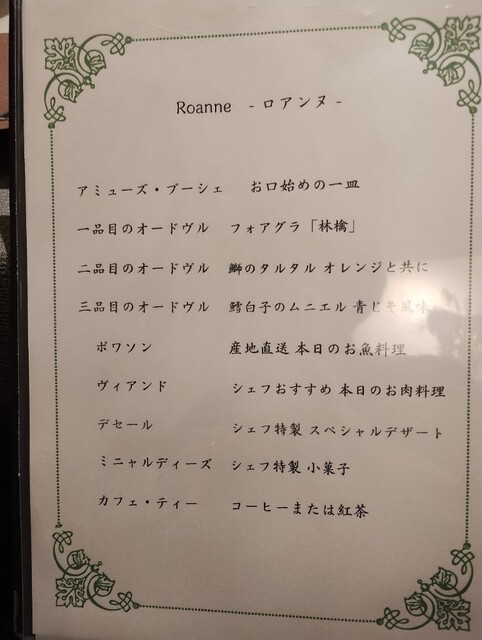 Roanne - ロアンヌ -
アミューズ・ブーシェ お口始めの一皿
一品目のオードヴル フォアグラ「林檎」
二品目のオードヴル 鰤のタルタル オレンジと共に
三品目のオードヴル 鱈白子のムニエル 青じそ風味
ポワソン 産地直送 本日のお魚料理
ヴィアンド シェフおすすめ 本日のお肉料理
デセール シェフ特製 スペシャルデザート
ミニャルディーズ シェフ特製 小菓子
カフェ・ティー コーヒーまたは紅茶